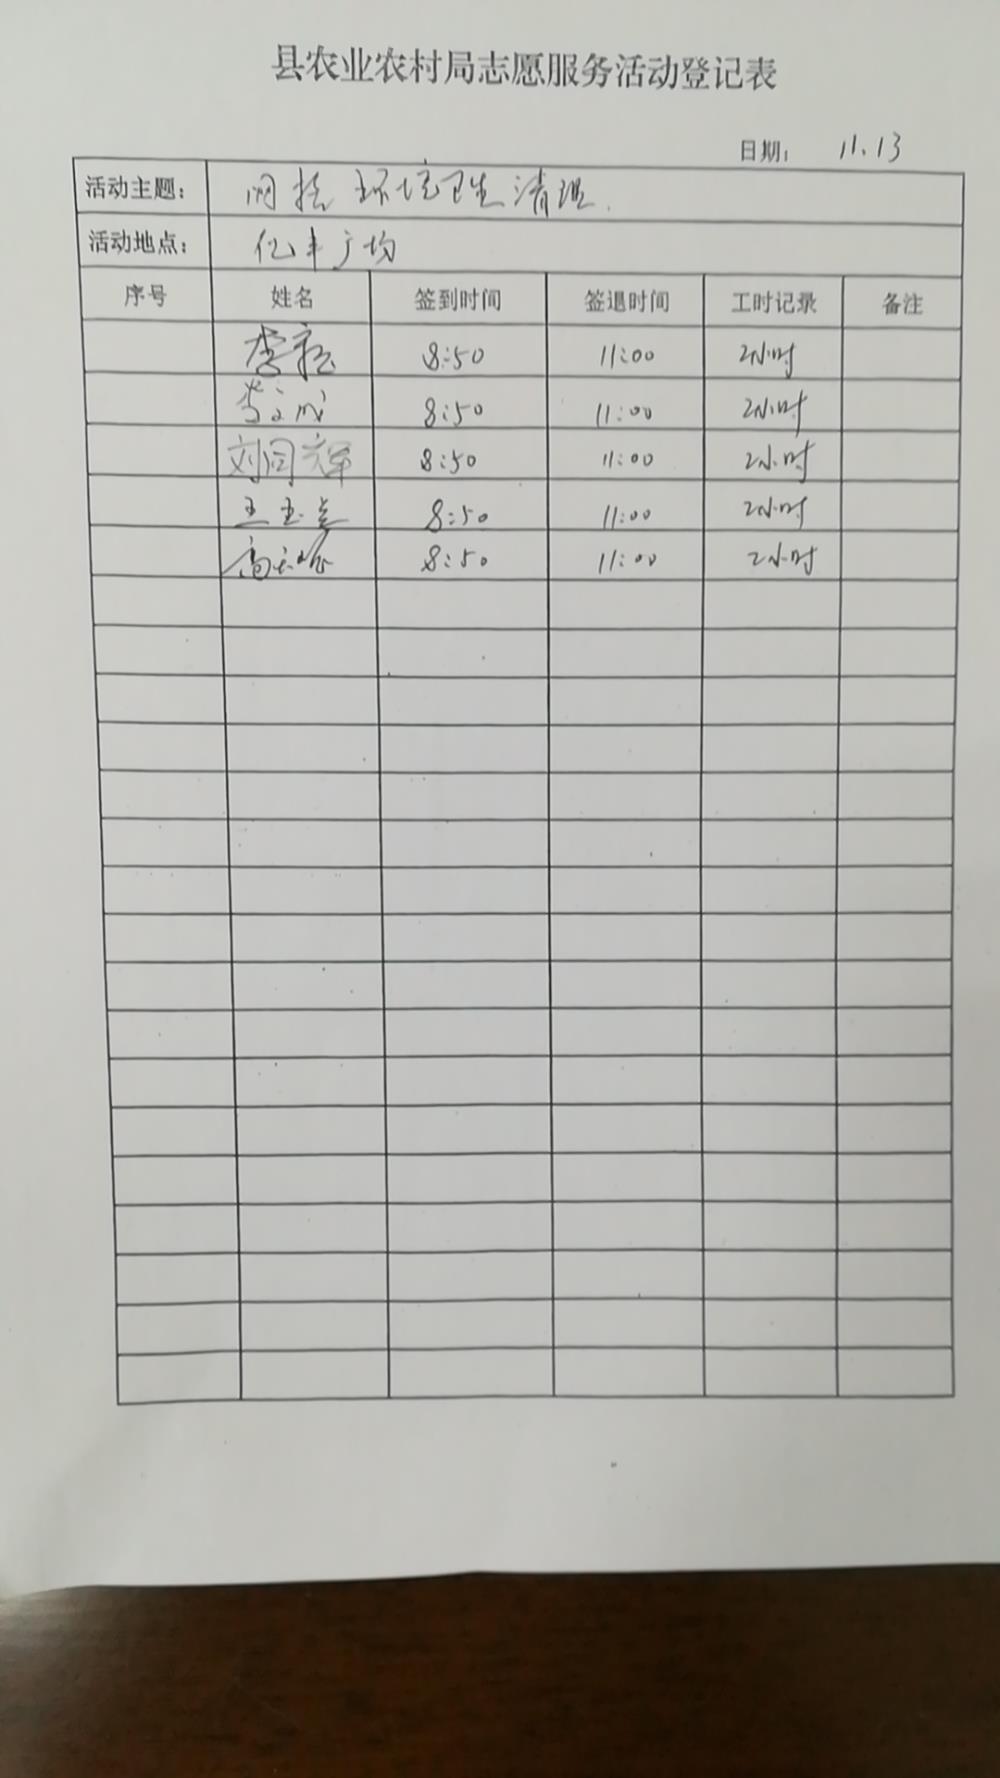 县农业农村局志愿服务活动登记表
日期： 11.13
活动主题： 网格环境卫生清理.
活动地点： 亿丰广场
序号 姓名 签到时间 签退时间 工时记录 备注
8:50 11:00 2小时
8:50 11:00 2小时
刘同辉 8:50 11:00 2小时
8:50 11:00 2小时
8:50 11:00 2小时